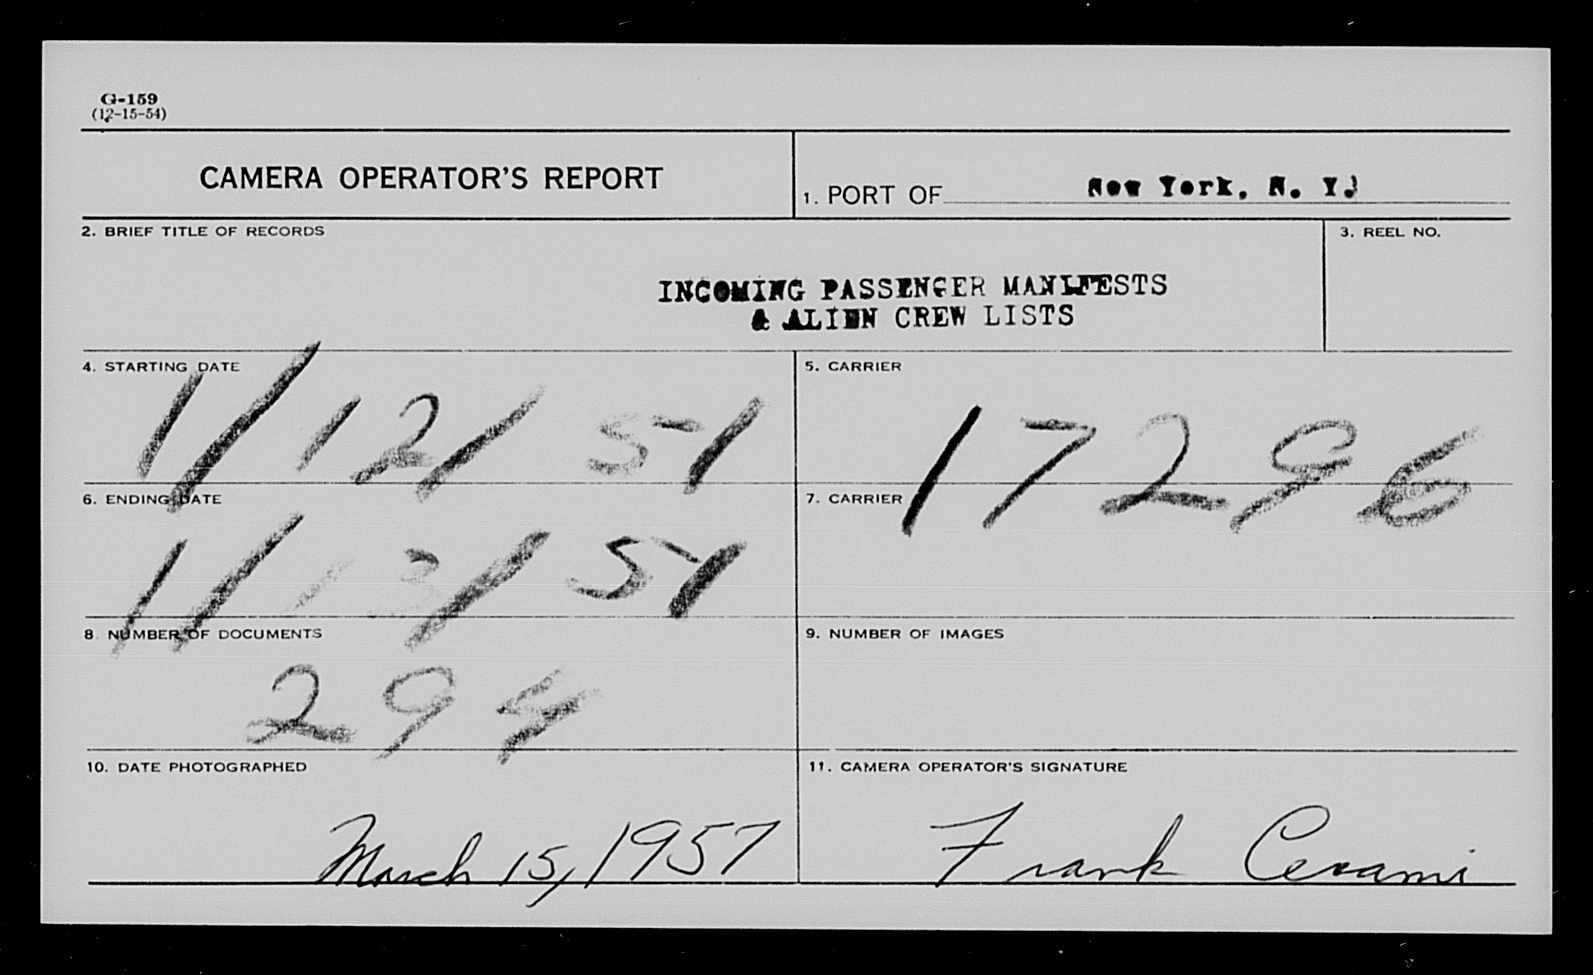 G-159
(12-15-54)
CAMERA OPERATOR'S REPORT
1. PORT OF New York, N. Y.
2. BRIEF TITLE OF RECORDS
3. REEL NO.
INCOMING PASSENGER MANIFESTS
& ALIEN CREW LISTS
4. STARTING DATE
1/12/51
5. CARRIER
17296
6. ENDING DATE
1/13/51
7. CARRIER
8. NUMBER OF DOCUMENTS
294
9. NUMBER OF IMAGES
10. DATE PHOTOGRAPHED
March 15, 1957
11. CAMERA OPERATOR'S SIGNATURE
Frank Cerami